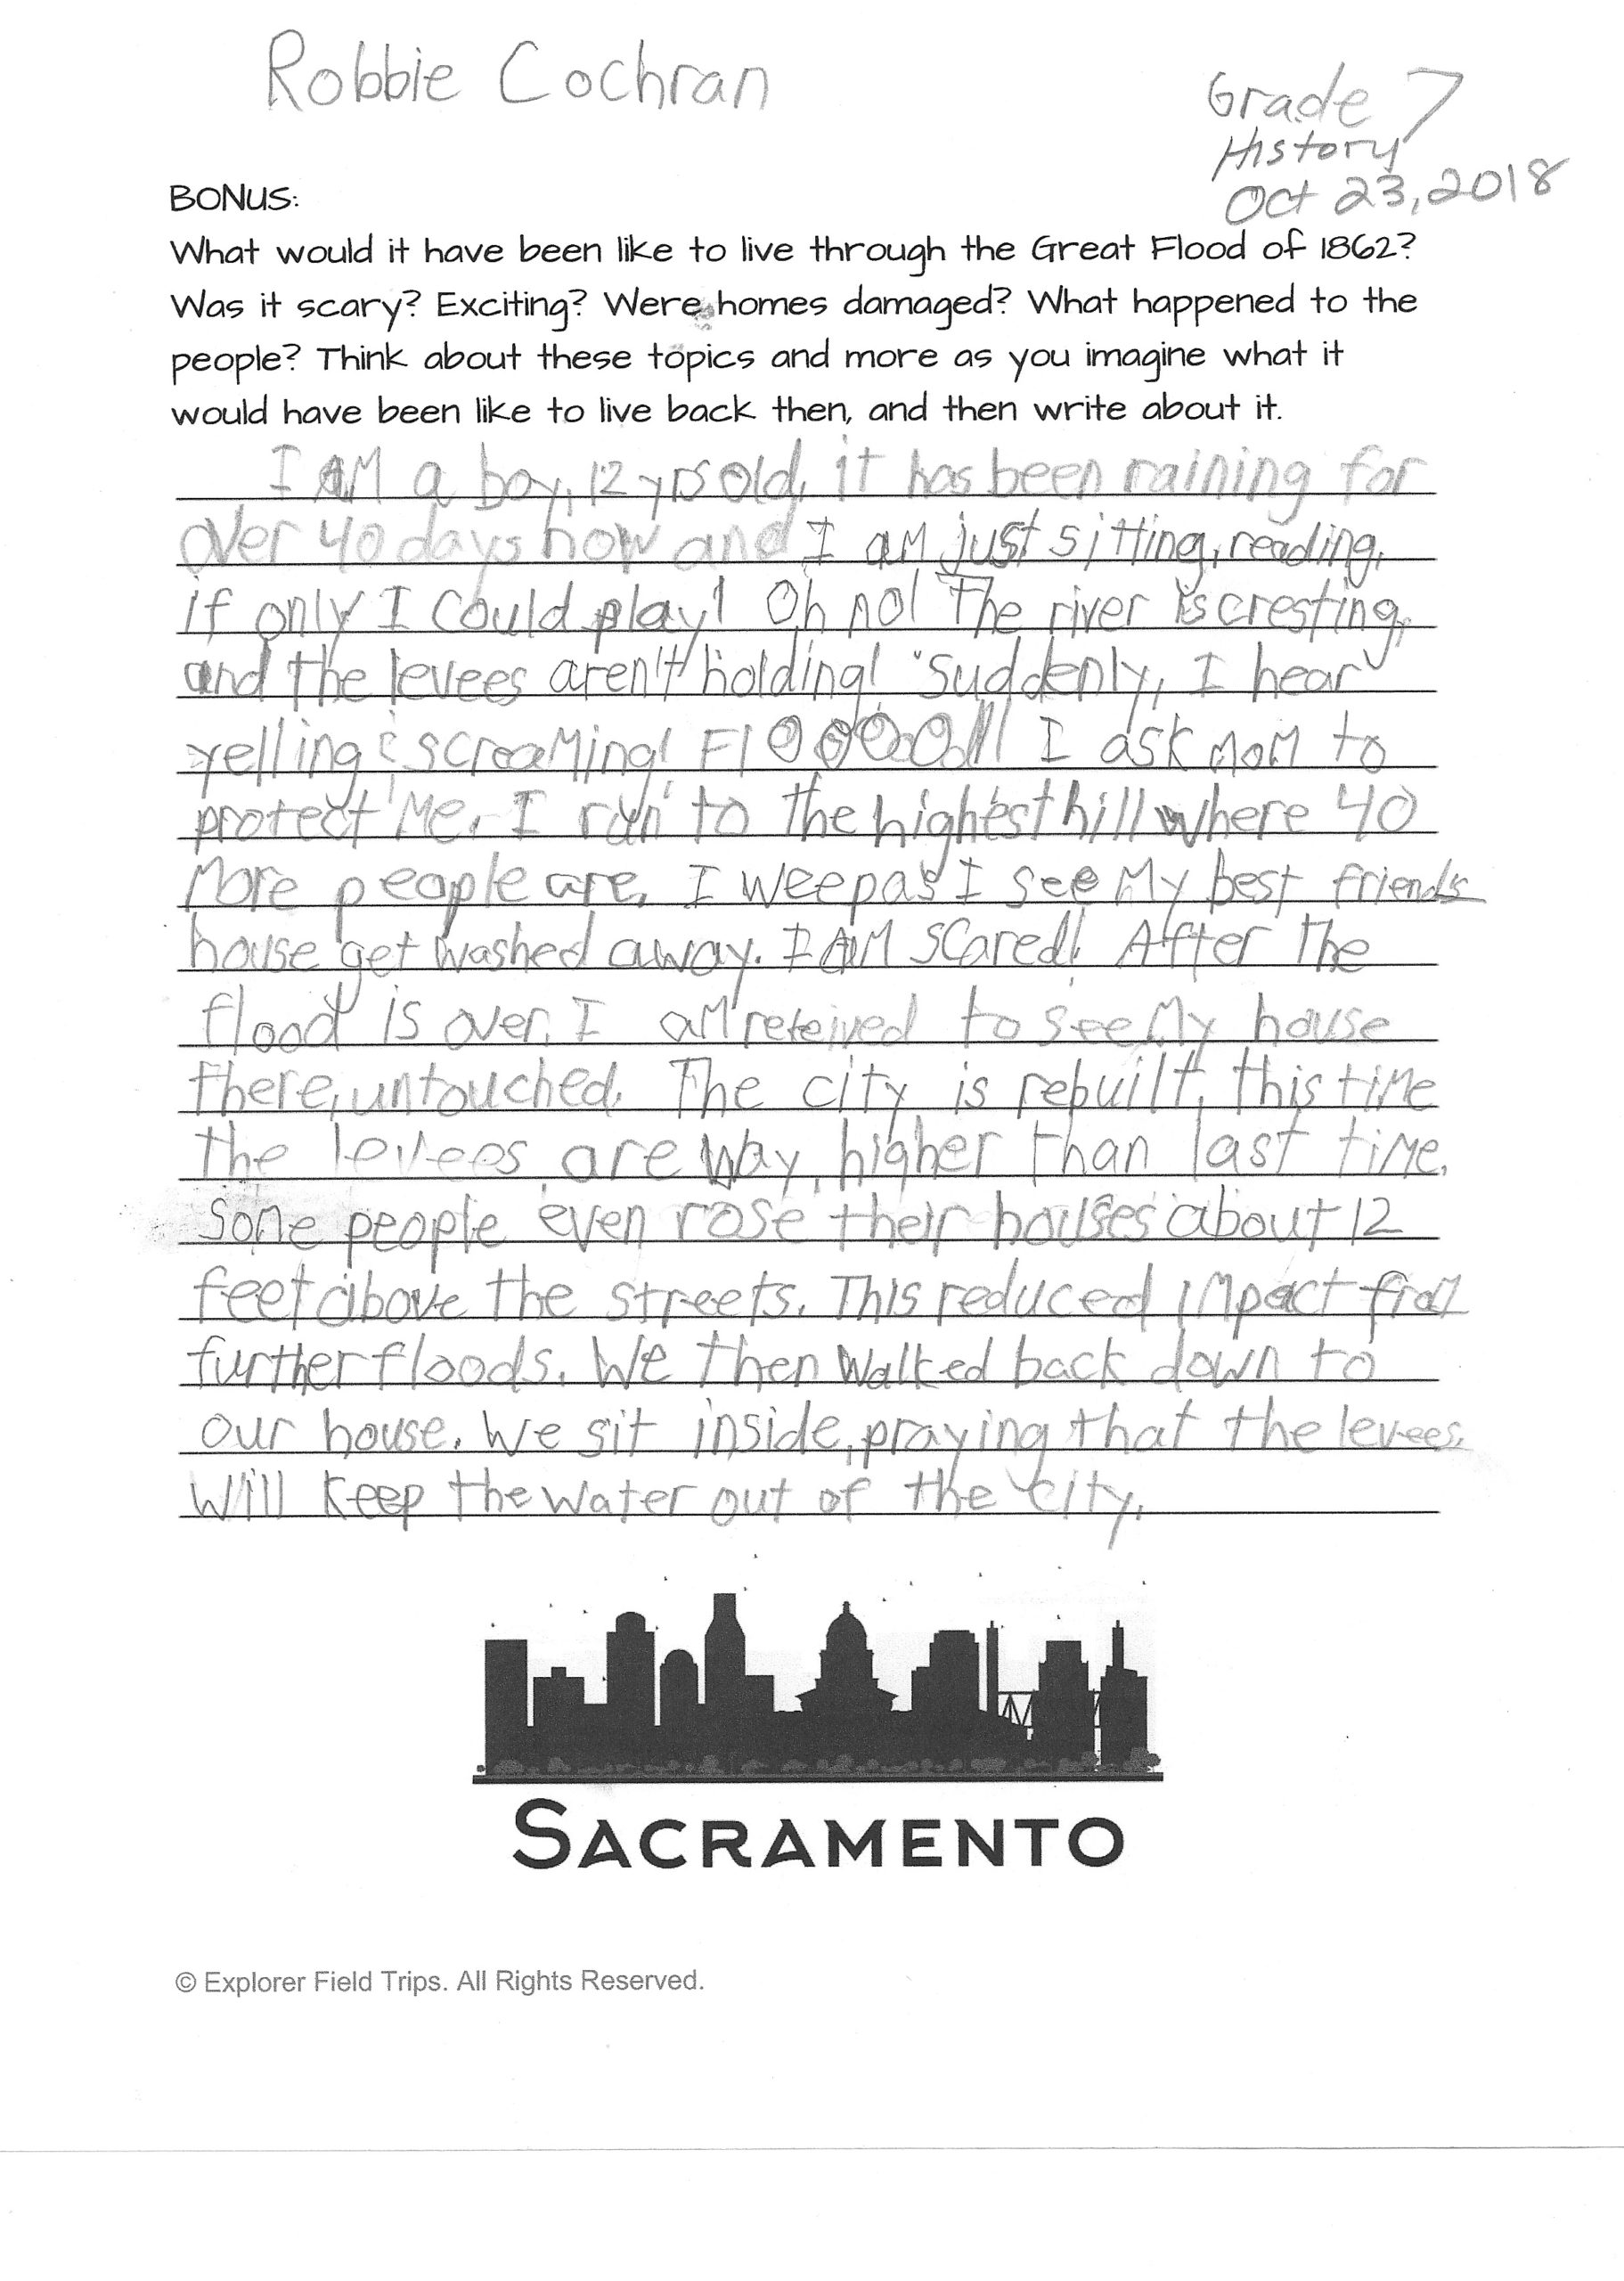 Robbie Cochran
Grade 7
History
Oct 23, 2018
BONUS:
What would it have been like to live through the Great Flood of 1862?
Was it scary? Exciting? Were homes damaged? What happened to the
people? Think about these topics and more as you imagine what it
would have been like to live back then, and then write about it.
I AM a boy, 12 yrs old, it has been raining for
over 40 days now and I am just sitting, reading,
if only I could play! Oh no! The river is cresting,
and the levees aren't holding! Suddenly, I hear
yelling & screaming! FlOOOOOd!! I ask mom to
protect me. I run to the highest hill where 40
More people are. I weep as I see My best friends
house get washed away. I AM scared! After the
flood is over, I am reteived to see My house
there, untouched. The city is rebuilt, this time
the levees are way higher than last time.
Some people even rose their houses about 12
feet above the streets. This reduced impact from
further floods. We then walked back down to
our house. We sit inside, praying that the levees
will keep the water out of the city.
SACRAMENTO
© Explorer Field Trips. All Rights Reserved.